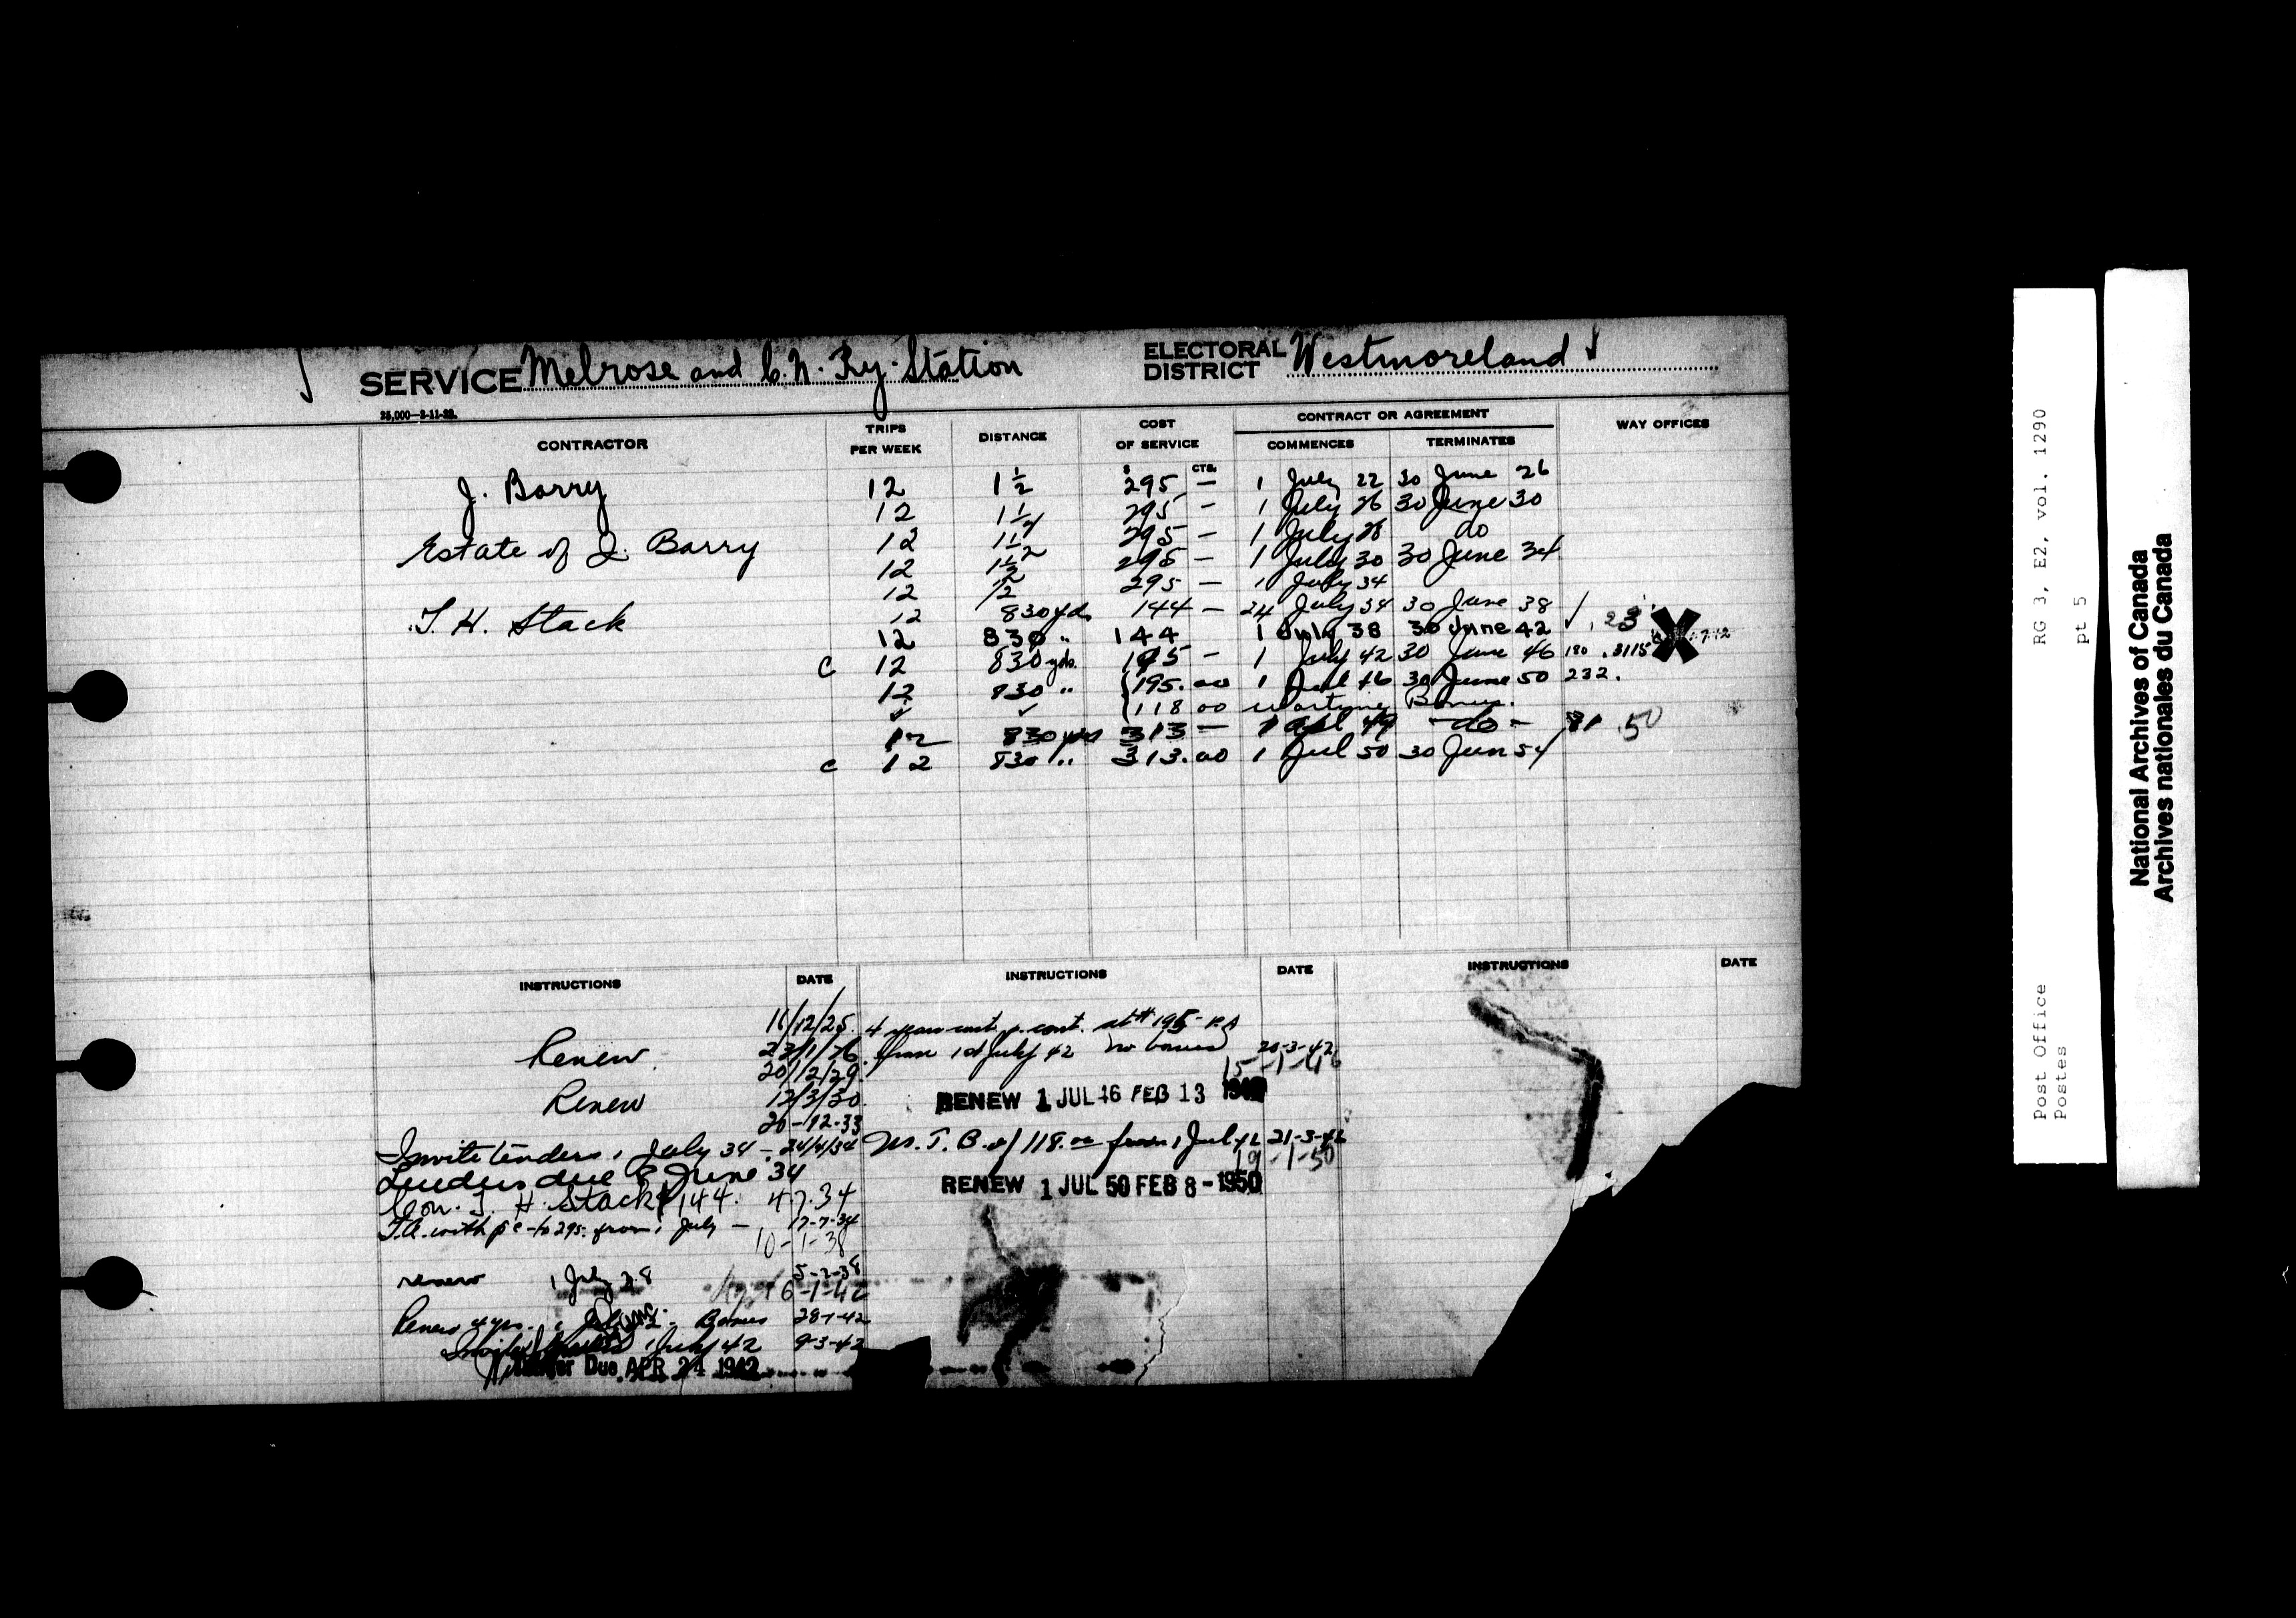 SERVICE Melrose and C.N. Ry. Station ELECTORAL DISTRICT Westmoreland
25,000—2-11-22.
CONTRACTOR TRIPS PER WEEK DISTANCE COST OF SERVICE CONTRACT OR AGREEMENT COMMENCES TERMINATES WAY OFFICES
$ CTS.
J. Barry 12 1 1/2 295 — 1 July 22 30 June 26
12 295 — 1 July 26 30 June 30
Estate of J. Barry 12 295 — 1 July do
12 1 1/2 295 — 1 July 30 30 June 34
12 1/2 295 — 1 July 34
T. H. Stack 12 830 yds 144 — 24 July 34 30 June 38 ✓ .23
12 830 " 144 1 July 38 30 June 42
C 12 830 yds. 195 — 1 July 42 30 June 46 180 .3115
12 830 " 195.00 1 Jul 46 30 June 50 232.
✓ ✓ 118 00 Wartime Bonus.
12 830 yds 313 — 1 Apl 49 — do — 81 .50
C 12 830 " 313.00 1 Jul 50 30 Jun 54
INSTRUCTIONS DATE INSTRUCTIONS DATE INSTRUCTIONS DATE
/12/25.
Renew. 23/1/26
20/12/29.
Renew 12/3/30.
20-12-33
Invite tenders 1 July 34 — 24/4/34
Tenders due 8 June 34
Con. T. H. Stack $144. 4.7.34
T.A. with p c to 295. from 1 July — 17-7-34
10-1-38
renew 1 July 38 5-2-38
6-1-42
Renew 4 yrs. Bonus 28-1-42
1 July 42 9-3-42
Tender Due APR 24 1942
4 years cont. at $195 P.A
from 1st July 42 no bonus 20-3-42
15-1-46
RENEW 1 JUL 46 FEB 13
W. T. B. of 118.00 from 1 Jul 42 21-3-42
19-1-50
RENEW 1 JUL 50 FEB 8 - 1950
Post Office RG 3, E2, vol. 1290
Postes pt 5
National Archives of Canada
Archives nationales du Canada